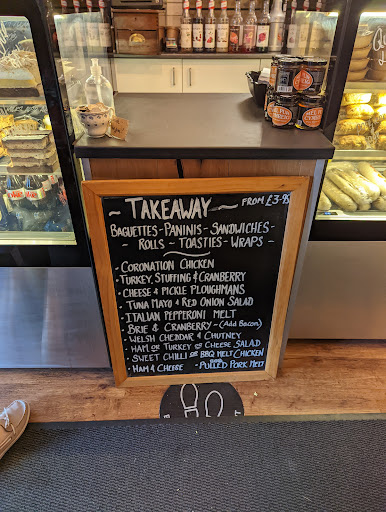 ~ TAKEAWAY ~ FROM £3.95
BAGUETTES - PANINIS - SANDWICHES -
- ROLLS - TOASTIES - WRAPS -
· CORONATION CHICKEN
· TURKEY, STUFFING & CRANBERRY
· CHEESE & PICKLE PLOUGHMANS
· TUNA MAYO & RED ONION SALAD
· ITALIAN PEPPERONI MELT
· BRIE & CRANBERRY - (Add BACON)
· WELSH CHEDDAR & CHUTNEY
· HAM OR TURKEY OR CHEESE SALAD
· SWEET CHILLI OR BBQ MELT CHICKEN
· HAM & CHEESE · BBQ PULLED PORK MELT